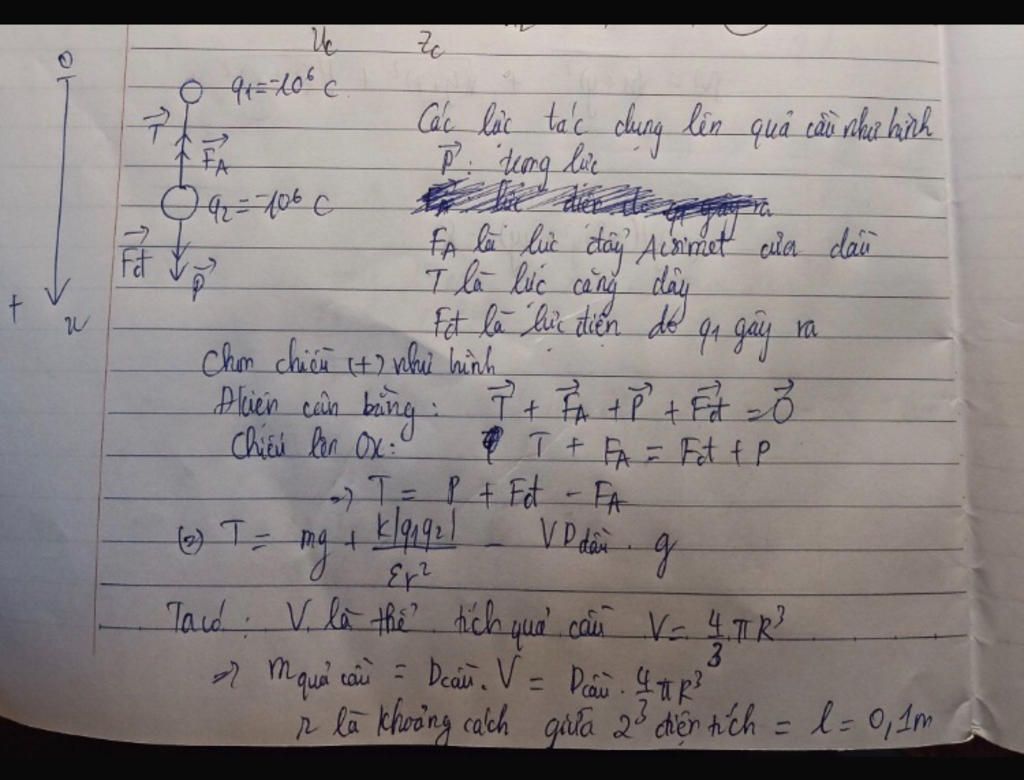 U_c Z_c
O
q1 = -10^6 C
T
Các lực tác dụng lên quả cầu như hình
F_A
P: trọng lực
q2 = -10^6 C
F_A là lực đẩy Acsimet của dầu
Fđ
P
T là lực căng dây
+
x
Fđ là lực điện do q1 gây ra
Chọn chiều (+) như hình
Đkiện cân bằng: T + F_A + P + Fđ = 0
Chiếu lên Ox: T + F_A = Fđ + P
=> T = P + Fđ - F_A
(=) T = mg + k|q1q2| / εr² - VD_dầu . g
Ta có: V là thể tích quả cầu V = 4/3 πR³
=> m_quả cầu = D_cầu . V = D_cầu . 4/3 πR³
r là khoảng cách giữa 2 điện tích = l = 0,1m